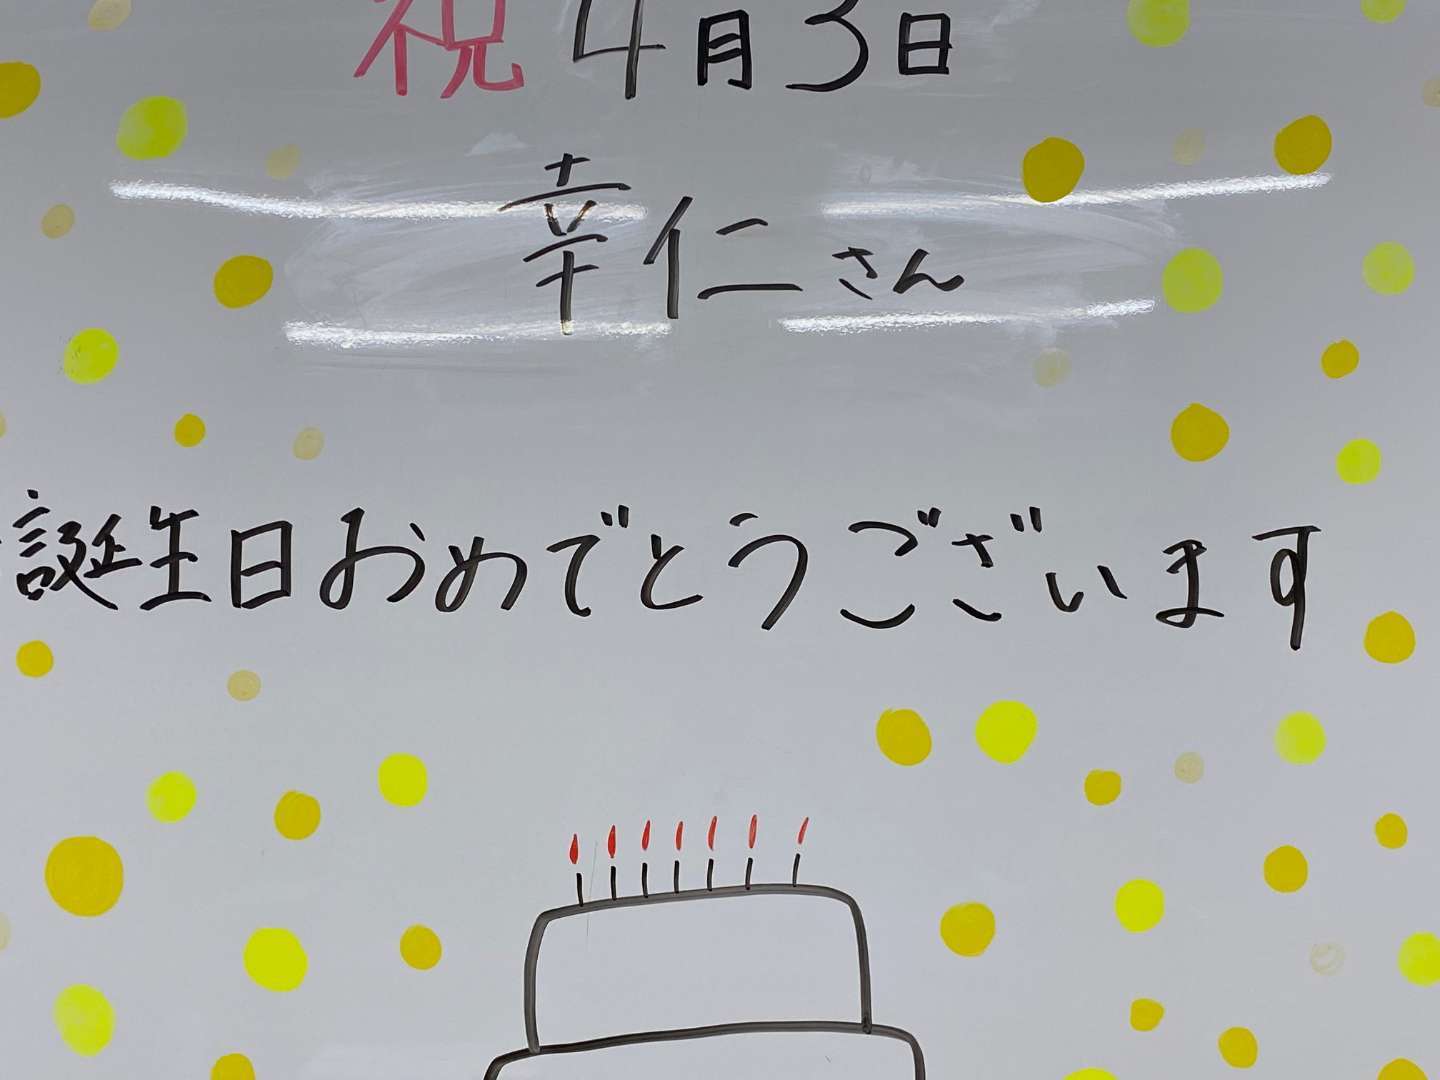 祝4月3日
幸仁さん
誕生日おめでとうございます